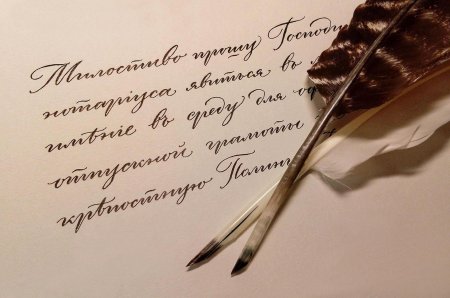 Милостиво прошу Господи
нотаріуса явиться въ
имѣніе въ среду для оф
отпускной грамоты
крѣпостную Полин